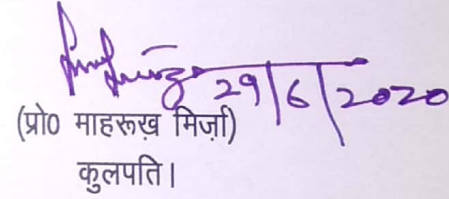 29/6/2020
(प्रो0 माहरूख़ मिर्ज़ा)
कुलपति।